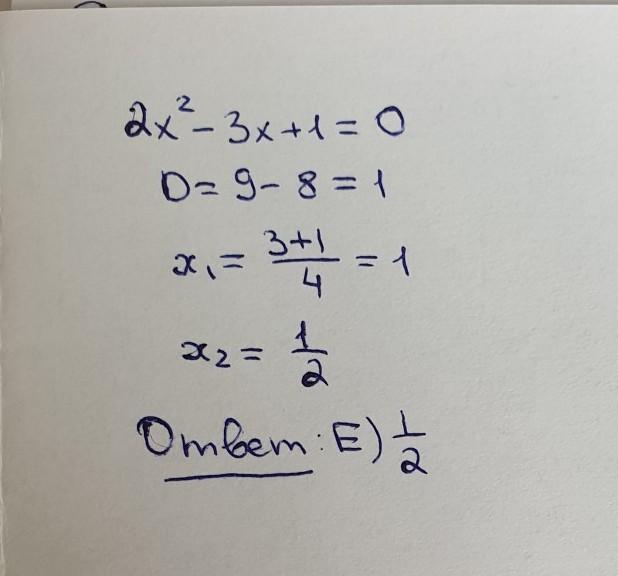 2x² - 3x + 1 = 0
D = 9 - 8 = 1
x₁ = (3+1)/4 = 1
x₂ = 1/2
Ответ: E) 1/2